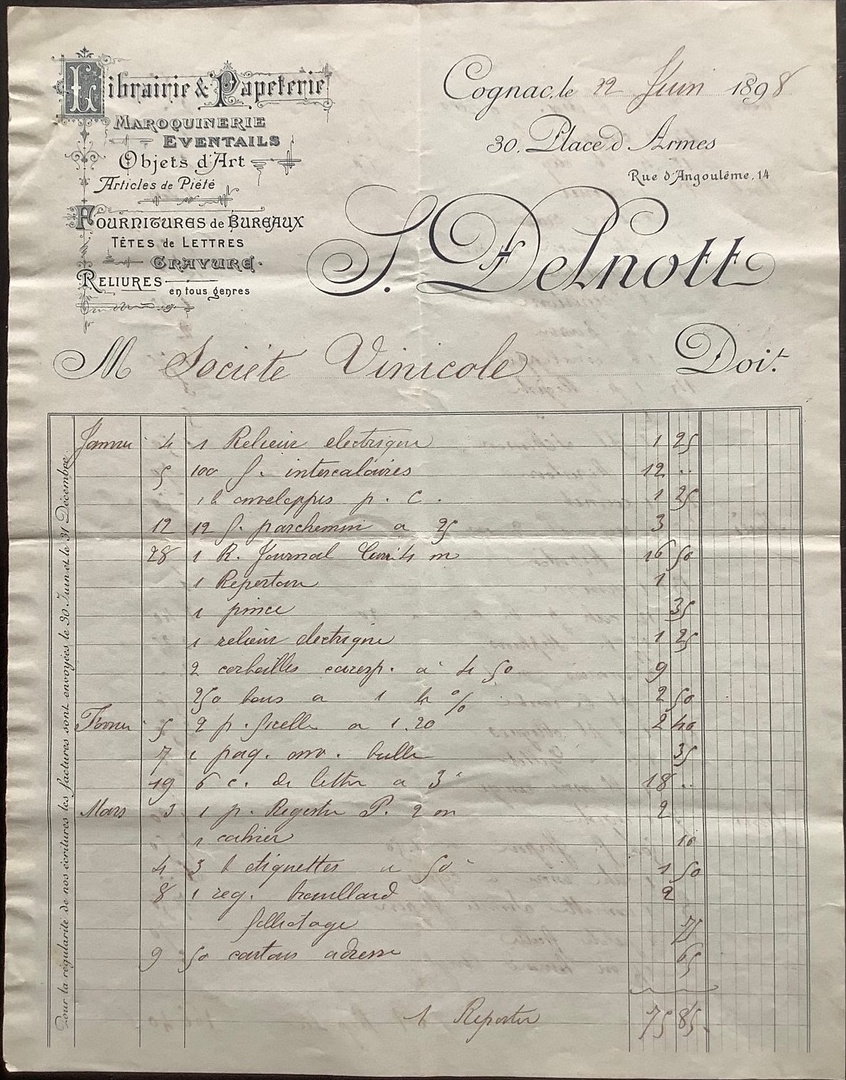 Librairie & Papeterie
MAROQUINERIE
EVENTAILS
Objets d'Art
Articles de Piété
FOURNITURES de BUREAUX
TÊTES de LETTRES
GRAVURE
RELIURES en tous genres
Cognac, le 22 Juin 1898
30, Place d'Armes
Rue d'Angoulême, 14
S. Delnott
M Société Vinicole Doit
Pour la régularité de nos écritures les factures sont envoyées le 30 Juin et le 31 Décembre
Janvier 4 1 Relieur electrique 1 25
5 100 f. intercalaires 12 ..
1 b enveloppes p. C. 1 25
12 12 f. parchemin a 25 3
28 1 R. Journal 4 m 16 50
1 Repertoire 1
1 pince 35
1 relieur electrique 1 25
2 corbeilles corresp. a 4 50 9
250 bons a 1 % 2 50
Fevrier 5 2 p. ficelle a 1.20 2 40
7 1 paq. bulle 35
19 6 c. de lettre a 3 18 ..
Mars 3 1 p. Registre P. 2 m 2
1 cahier 10
4 3 b etiquettes a 50 1 50
8 1 reg. brouillard 2
folliotage 75
9 50 cartons adresse 65
A Reporter 75 85